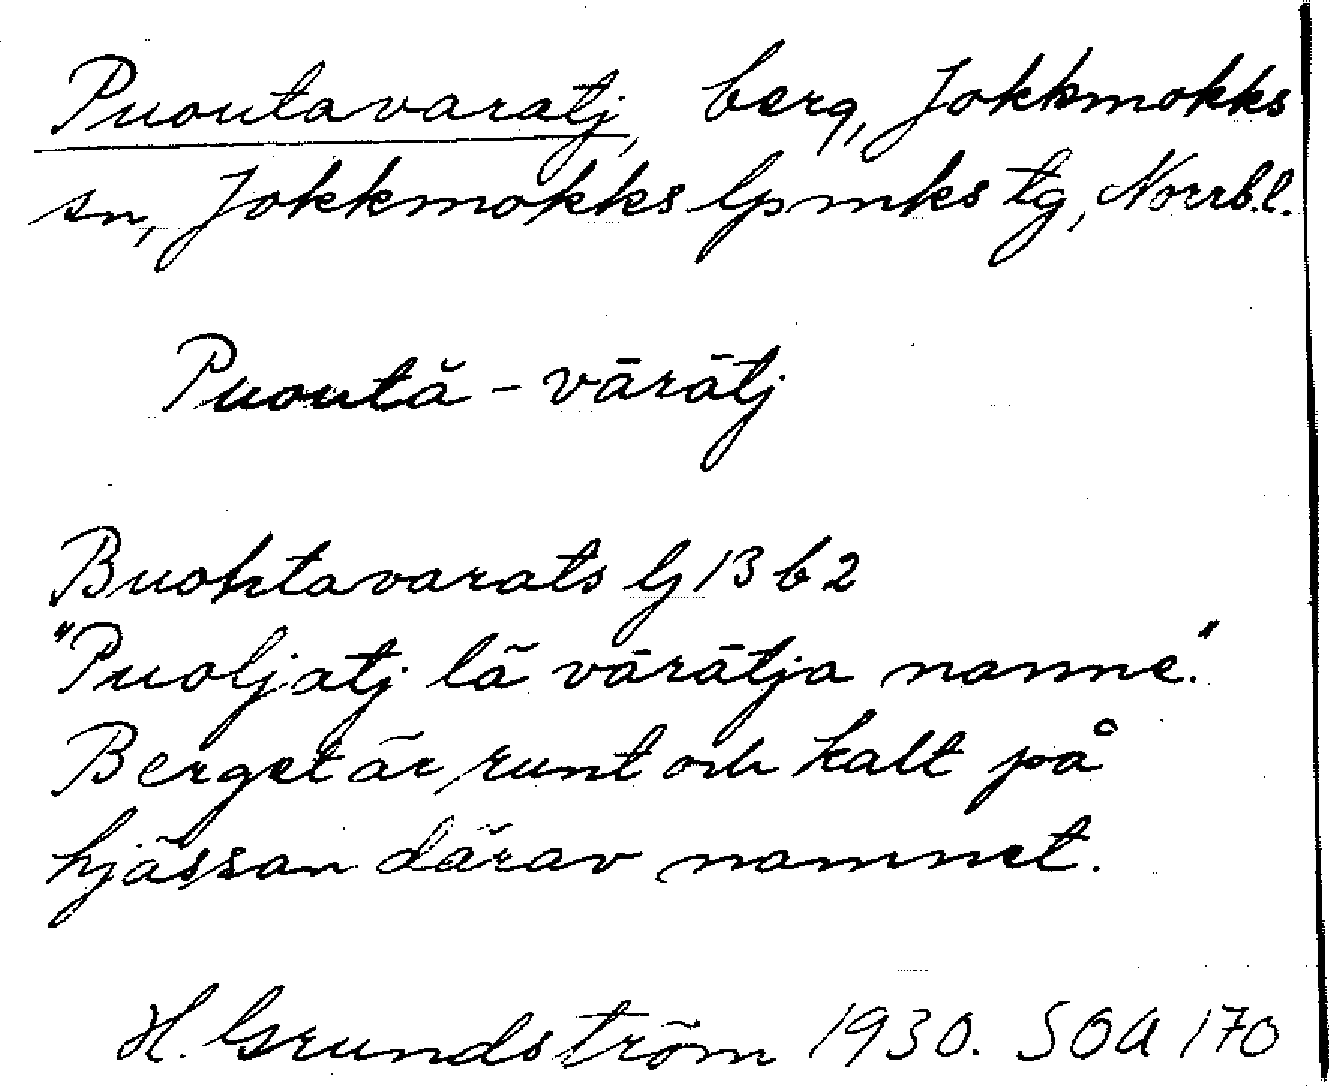 Puoutavaratj, berg, Jokkmokks
sn, Jokkmokks lpmks tg, Norrb.l.
Puoută - vārātj
Buohtavarats lj 13 b 2
"Puoljatj lā vārātja nanne."
Berget är runt och kalt på
hjässan därav namnet.
H. Grundström 1930. SOA 170